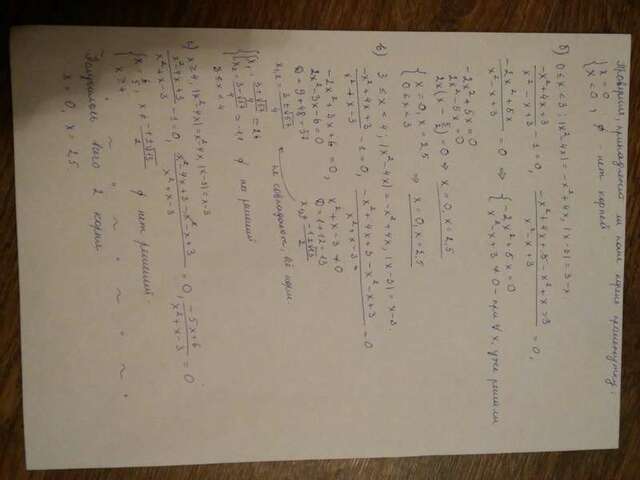 Поверим, принадлежит ли наш корень промежутку:
{ x = 0
{ x < 0 , ∅ - нет корней
б) 0 ≤ x < 3 ; |x²-4x| = -x²+4x, |x-3| = 3-x
(-x²+4x+3)/(x²-x+3) - 1 = 0, (-x²+4x+3-x²+x-3)/(x²-x+3) = 0,
(-2x²+5x)/(x²-x+3) = 0 ⇒ { -2x²+5x = 0
{ x²-x+3 ≠ 0 - при ∀ x, уже решали
-2x²+5x = 0
2x²-5x = 0
2x(x - 5/2) = 0 ⇒ x = 0, x = 2,5
{ x = 0, x = 2,5
{ 0 ≤ x < 3 ⇒ x = 0, x = 2,5
в) 3 ≤ x < 4 ; |x²-4x| = -x²+4x, |x-3| = x-3
(-x²+4x+3)/(x²+x-3) - 1 = 0, (-x²+4x+3-x²-x+3)/(x²+x-3) = 0
-2x²+3x+6 = 0, x²+x-3 ≠ 0
2x²-3x-6 = 0 D = 1+12 = 13
D = 9+48 = 57 x₁,₂ ≠ (-1±√13)/2
x₁,₂ = (3±√57)/4 ← не совпадают, всё норм
{ x₁ = (3+√57)/4 ≈ 2,6
{ x₂ = (3-√57)/4 ≈ -1,1 ∅ нет решений
3 ≤ x < 4
г) x ≥ 4, |x²-4x| = x²-4x, |x-3| = x-3
(x²-4x+3)/(x²+x-3) - 1 = 0, (x²-4x+3-x²-x+3)/(x²+x-3) = 0, (-5x+6)/(x²+x-3) = 0
{ x = 6/5, x ≠ (-1±√13)/2
{ x ≥ 4 ∅ нет решений.
Получилось всего 2 корня
x = 0, x = 2,5